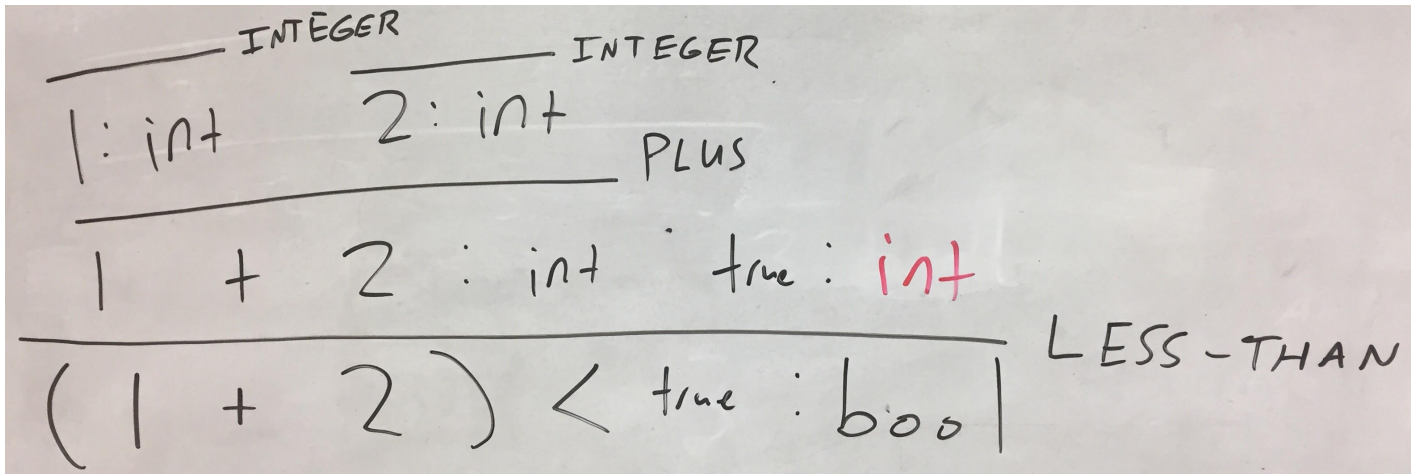 INTEGER INTEGER
1: int 2: int
PLUS
1 + 2 : int true : int
LESS-THAN
(1 + 2) < true : bool